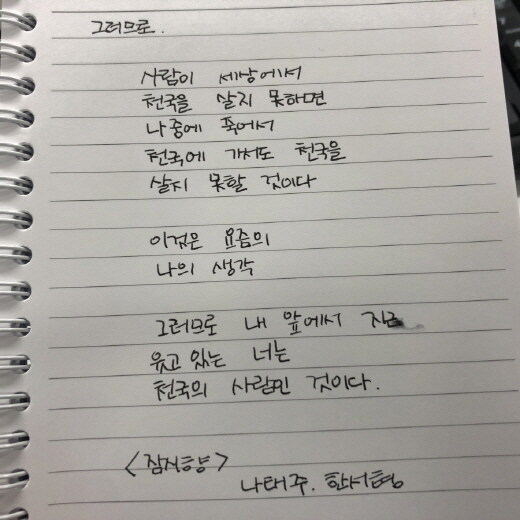 그러므로.
사람이 세상에서
천국을 살지 못하면
나중에 죽어서
천국에 가서도 천국을
살지 못할 것이다
이것은 요즘의
나의 생각
그러므로 내 앞에서 지금
웃고 있는 너는
천국의 사람인 것이다.
<잠시향>
나태주. 한서형